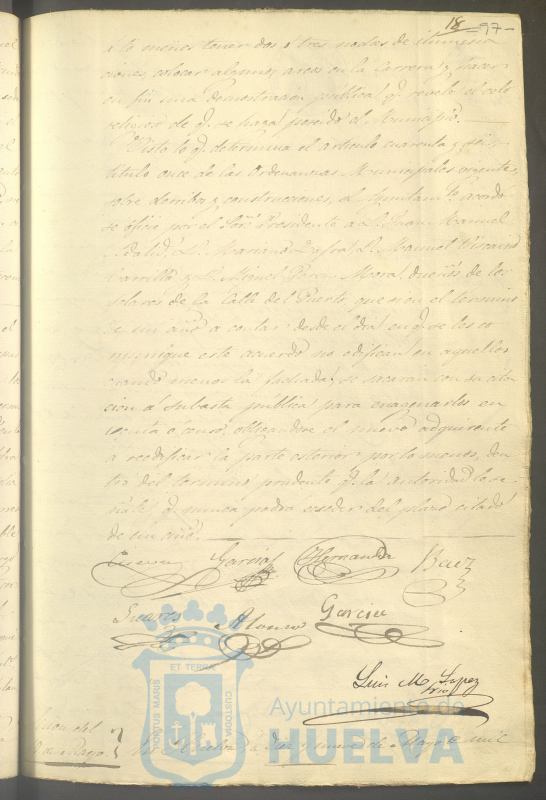 18 = 97 -
á lo menos tener dos ó tres noches de ilumina
ciones, colocar algunos arcos en la Carrera, y hacer
en fin una demostracion publica q.e revele el celo
religioso de q.e se halla poseido el Municipio.
Visto lo q.e determina el articulo cuarenta y
titulo once de las Ordenanzas Municipales vigentes,
sobre derribos y construcciones, el Ayuntam.to acordó
se oficie por el Señ.r Presidente a D. Juan Manuel
D. Mariano D. Manuel Vizcaino
Carrillo, y D. Manuel Perez Moral, dueños de los
solares de la Calle del Puerto que si en el termino
de un año a contar desde el dia en q.e se les co
munique este acuerdo no edifican en aquellos
cuando menos la fachada, se sacaran con su cita
cion á subasta pública para enagenarlos en
venta ó censo, obligandose el nuevo adquirente
á reedificar la parte exterior por lo menos, den
tro del termino prudente q.e la autoridad le se
ñale q.e nunca podrá esceder del plazo citado
de un año.
Garcia Hernandez Baez
Suarez Alonso Garcia
Luis M. Lopez
Srio
de Mayo
diez y nueve de Mayo de mil
PORTUS MARIS
ET TERRÆ
CUSTODIA
Ayuntamiento de
HUELVA